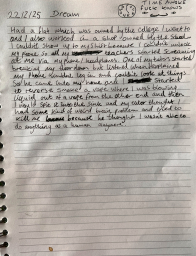 22/12/25 Dream
TIME
FUCK KNOWS
Had a flat which was owned by the college I went to
and I also worked in a shop owned by the school
I couldn't show up to my shift because I couldn't unlock
my phone so all my teachers started screaming
at me via my phone/headphones. One of my tutors started
breaking my door down but listened when I explained
my phone wouldn't log in and couldn't look at things
So he came into my home and I started
to reverse smoke a vape where I was blowing
liquid out of a vape from the other end and then
I would spit it into the sink and my tutor thought I
had some kind of weird brain problem and tried to
kill me because he thought I wasn't able to
do anything as a human anymore.